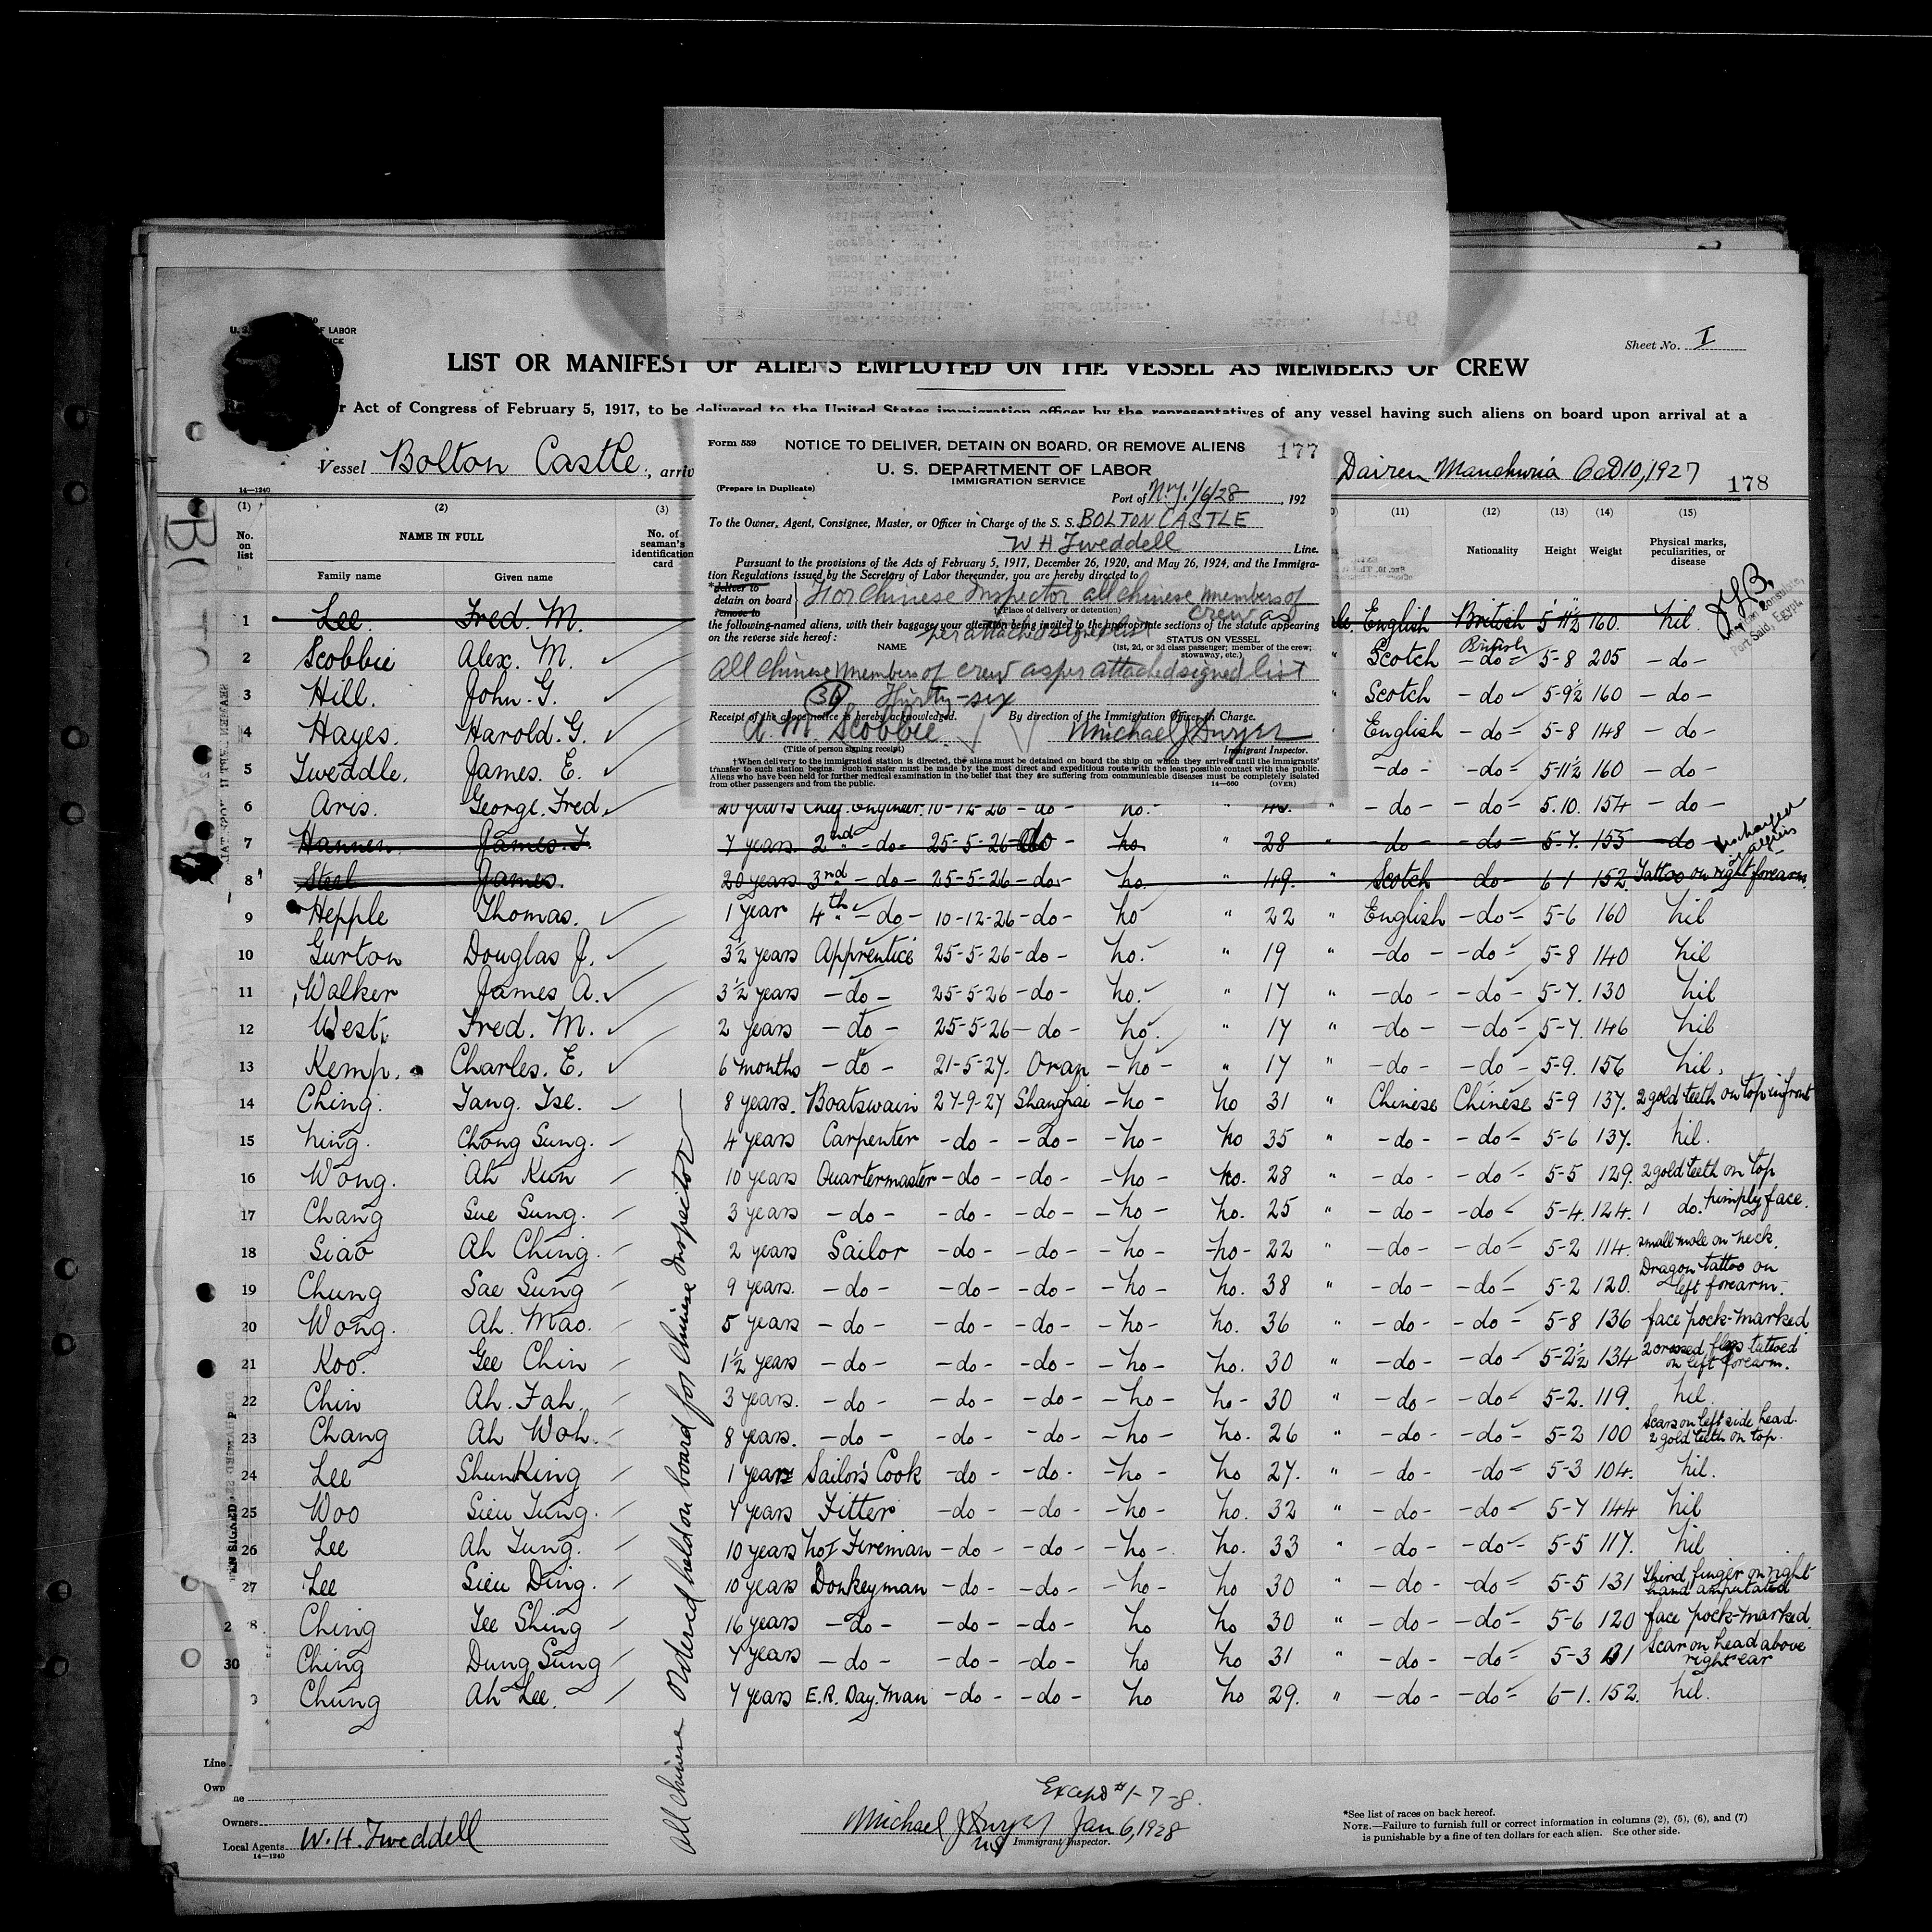 Sheet No. I
LIST OR MANIFEST OF ALIENS EMPLOYED ON THE VESSEL AS MEMBERS OF CREW
Act of Congress of February 5, 1917, to be delivered to the United States immigration officer by the representatives of any vessel having such aliens on board upon arrival at a
Vessel Bolton Castle, Dairen Manchuria Oct 10, 1927
178
Form 559 NOTICE TO DELIVER, DETAIN ON BOARD, OR REMOVE ALIENS 177
U. S. DEPARTMENT OF LABOR
IMMIGRATION SERVICE
(Prepare in Duplicate)
Port of N.Y. 1/6/28, 192
To the Owner, Agent, Consignee, Master, or Officer in Charge of the S. S. BOLTON CASTLE
W H Tweddell Line.
Pursuant to the provisions of the Acts of February 5, 1917, December 26, 1920, and May 26, 1924, and the Immigra-
tion Regulations issued by the Secretary of Labor thereunder, you are hereby directed to
*deliver to
detain on board For Chinese Inspector all chinese members of
remove to
(Place of delivery or detention) crew as
the following-named aliens, with their baggage, your attention being invited to the appropriate sections of the statute appearing
on the reverse side hereof: per attached signed list
NAME STATUS ON VESSEL
(1st, 2d, or 3d class passenger; member of the crew;
stowaway, etc.)
all chinese members of crew as per attached signed list
36 Thirty-six
Receipt of the above notice is hereby acknowledged. By direction of the Immigration Officer in Charge.
A. M. Scobbie Michael J Dwyer
(Title of person signing receipt) Immigrant Inspector.
†When delivery to the immigration station is directed, the aliens must be detained on board the ship on which they arrived until the immigrants'
transfer to such station begins. Such transfer must be made by the most direct and expeditious route with the least possible contact with the public.
Aliens who have been held for further medical examination in the belief that they are suffering from communicable diseases must be completely isolated
from other passengers and from the public. 14—660 (OVER)
14—1240
(1) (2) (3) (11) (12) (13) (14) (15)
No. on list NAME IN FULL No. of seaman's identification card Nationality Height Weight Physical marks, peculiarities, or disease
Family name Given name
American Consulate, Port Said, Egypt.
1 Lee. Fred. M. English British 5'11½ 160. nil
2 Scobbie Alex. M. Scotch British -do- 5-8 205 -do-
3 Hill. John. G. Scotch -do- 5-9½ 160 -do-
4 Hayes. Harold. G. English -do- 5-8 148 -do-
5 Tweddle. James. E. -do- -do- 5-11½ 160 -do-
6 Aris. George. Fred. 20 years Chief. Engineer. 10-12-26 -do- no. " 43. " -do- -do- 5.10. 154 -do-
7 Hannen James. T. 7 years. 2nd -do- 25-5-26 do no " 28 " do -do- 5-7. 155 do
8 Steel James. 20 years 3rd -do- 25-5-26 -do- no. " 49. " Scotch do 6 1 152 Tattoo on right forearm.
9 Hepple Thomas. 1 year 4th -do- 10-12-26 -do- no " 22 " English -do- 5-6 160 nil
10 Gurton Douglas J. 3½ years Apprentice 25-5-26 -do- no. " 19 " -do- -do- 5-8 140 nil
11 Walker James A. 3½ years -do- 25-5-26 -do- no. " 17 " -do- -do- 5-7. 130 nil
12 West. Fred. M. 2 years -do- 25-5-26 -do- no. " 17 " -do- -do- 5-7. 146 nil
13 Kemp. Charles. E. 6 months -do- 21-5-27. Oran -no- " 17 " -do- -do- 5-9. 156 nil.
14 Ching. Tang. Tse. 8 years. Boatswain 27-9-27 Shanghai -no- no 31 " Chinese Chinese 5-9 137. 2 gold teeth on top in front
15 Ning. Chong Sung. 4 years Carpenter -do- -do- -no- no 35 " -do- -do- 5-6 137. nil.
16 Wong. Ah Kun 10 years Quartermaster -do- -do- -no- no. 28 " -do- -do- 5-5 129. 2 gold teeth on top
17 Chang Sue Sung. 3 years -do- -do- -do- -no- no. 25 " -do- -do- 5-4. 124. 1 do. pimply face.
18 Siao Ah Ching. 2 years Sailor -do- -do- -no- -no- 22 " -do- -do- 5-2 114. small mole on neck.
19 Chung Sae Sung 9 years. -do- -do- -do- -no- no. 38 " -do- -do- 5-2 120. Dragon tattoo on left forearm.
20 Wong. Ah. Mao. 5 years -do- -do- -do- -no- no. 36 " -do- -do- 5-8 136 face pock-marked.
21 Koo. Gee Chin 1½ years -do- -do- -do- -no- no. 30 " -do- -do- 5-2½ 134 2 crossed flags tattoed on left forearm.
22 Chin Ah. Fah. 3 years. -do- -do- -do- -no- no- 30 " -do- -do- 5-2. 119. nil.
23 Chang Ah Woh. 8 years. -do- -do- -do- -no- no. 26 " -do- -do- 5-2 100 Scars on left side head. 2 gold teeth on top.
24 Lee Shun King 1 year Sailor's Cook -do- -do- -no- no 27. " -do- -do- 5-3 104. nil.
25 Woo Sieu Tung. 7 years Fitter -do- -do- -no- no. 32 " -do- -do- 5-7 144 nil
26 Lee Ah Tung. 10 years No1 Fireman -do- -do- -no- no. 33 " -do- -do- 5-5 117. nil
27 Lee Sieu Ding. 10 years Donkeyman -do- -do- -no- no 30 " -do- -do- 5-5 131 Third finger on right hand amputated
28 Ching Yee Shing 16 years -do- -do- -do- no no 30 " -do- -do- 5-6 120 face pock-marked.
30 Ching Dung Sung 7 years -do- -do- -do- no no 31 " -do- -do- 5-3 131 Scar on head above right ear
Chung Ah Lee. 7 years E.R. Day. Man -do- -do- no no 29. " -do- -do- 6-1. 152. nil.
All Chinese ordered held on board for Chinese Inspector
Line
Owners
Local Agents W. H. Tweddell
14—1240
Except # 1-7-8.
Michael J Dwyer Jan 6, 1928
Immigrant Inspector.
*See list of races on back hereof.
NOTE.—Failure to furnish full or correct information in columns (2), (5), (6), and (7)
is punishable by a fine of ten dollars for each alien. See other side.